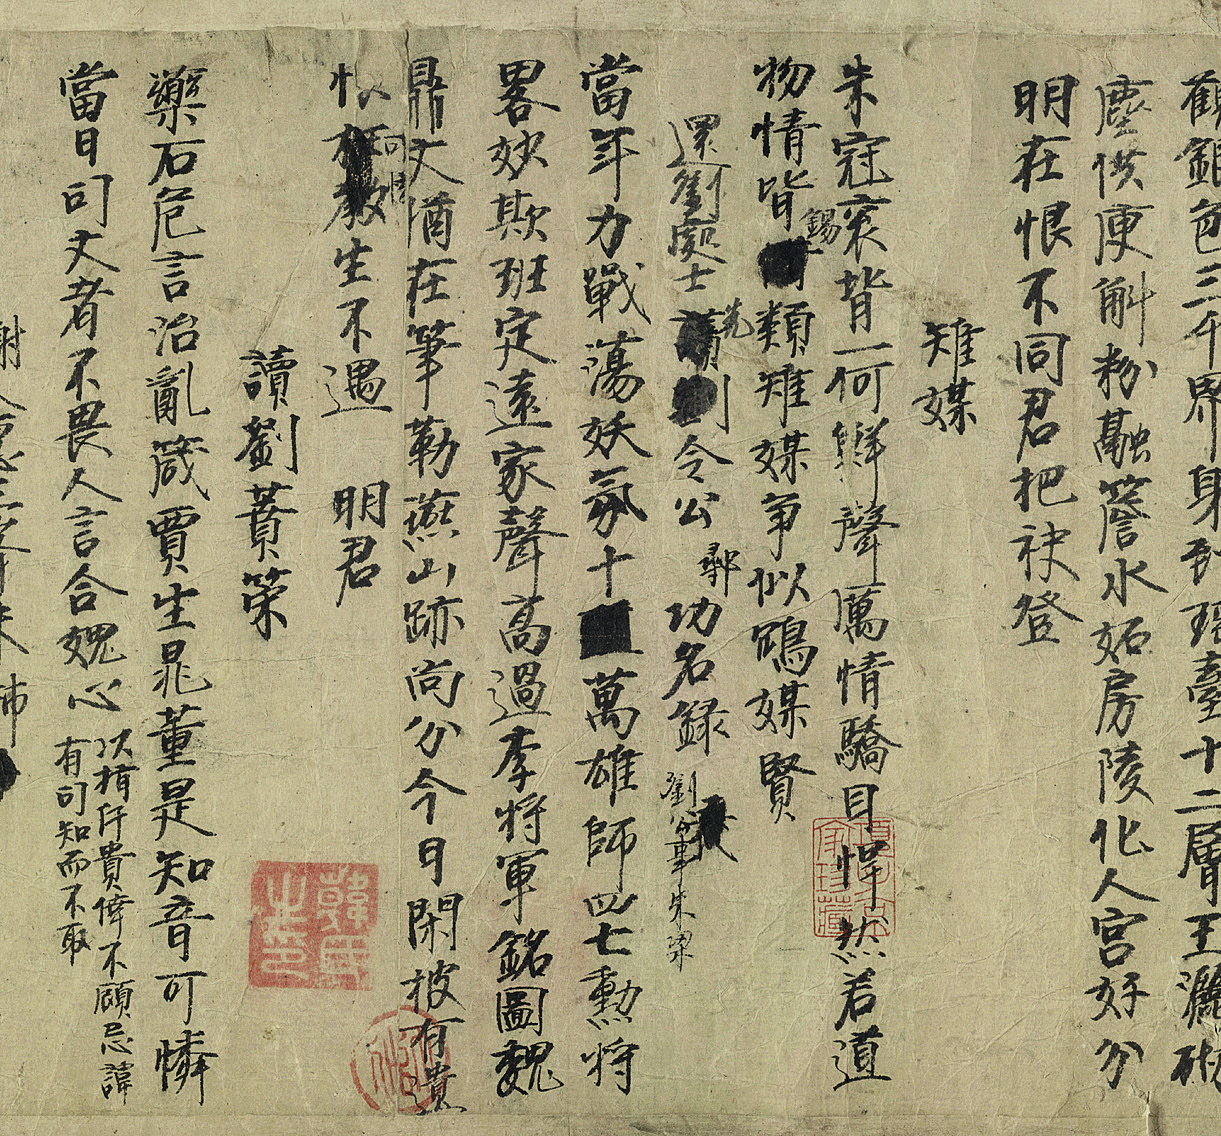 觀銀色三千界身到瑤臺十二層玉灑
塵供更斛粉融簷水妬房陵化人宮好分
明在恨不同君把袂登
雉媒
朱冠衮背一何鮮聲厲情驕目悍然若道
物情皆錫類雉媒爭似鴆媒賢
還劉處士先令公鄩功名録
當年力戰蕩妖氛十萬雄師四七勳將
畧妙欺班定遠家聲高過李將軍銘圖魏
鼎文猶在筆勒燕山跡尚分今日閑披有遺
恨教生不遇明君
讀劉蕡策
藥石危言治亂箴賈生晁董是知音可憐
當日司文者不畏人言合媿心
以指仟貴倖不顧忌諱
有司知而不取